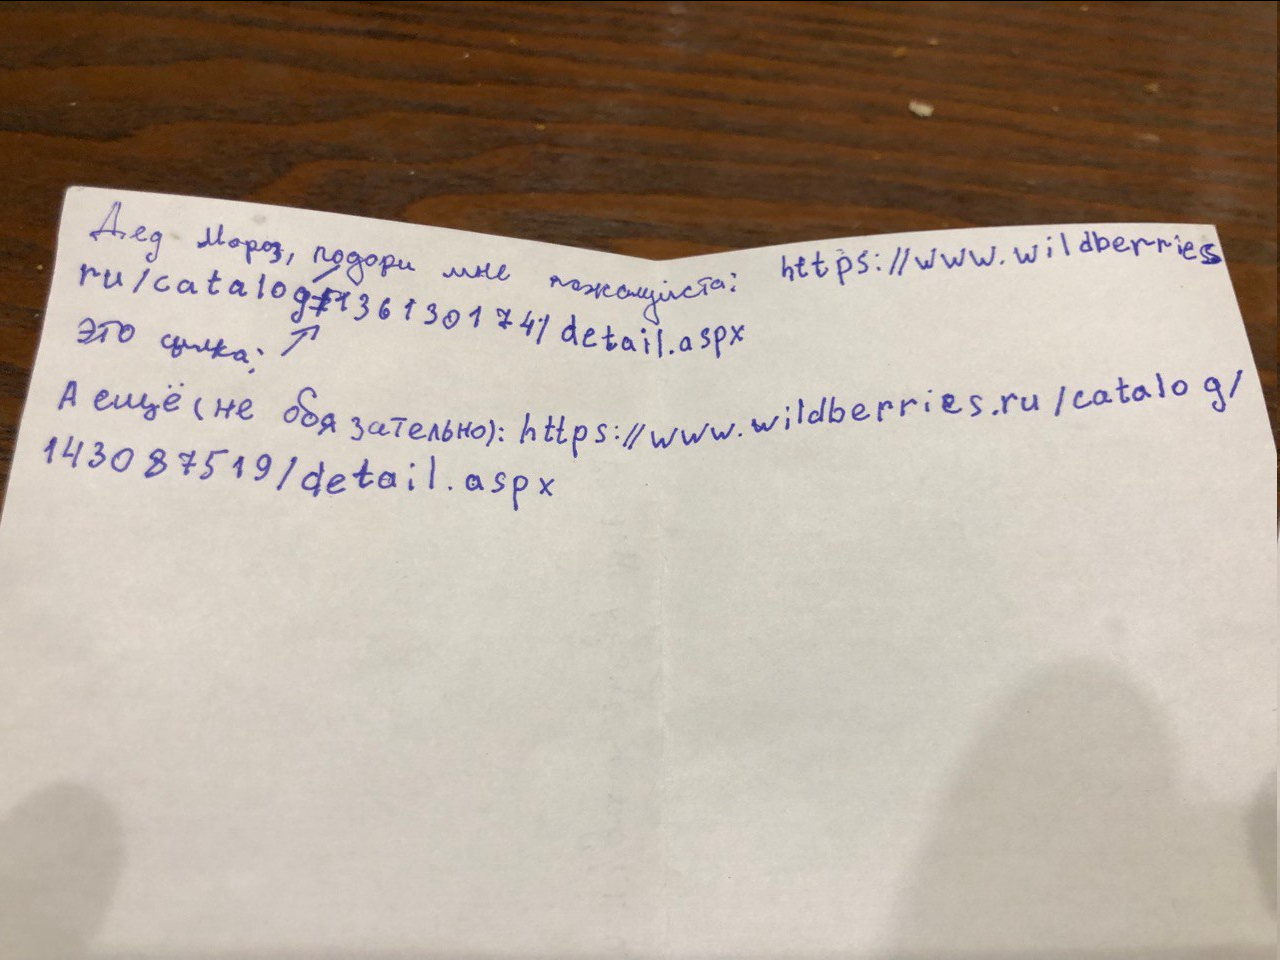 Дед Мороз, подари мне пожалуйста: https://www.wildberries
ru/catalog/136130174/detail.aspx
Это сылка:
А ещё (не обязательно): https://www.wildberries.ru/catalog/
143087519/detail.aspx